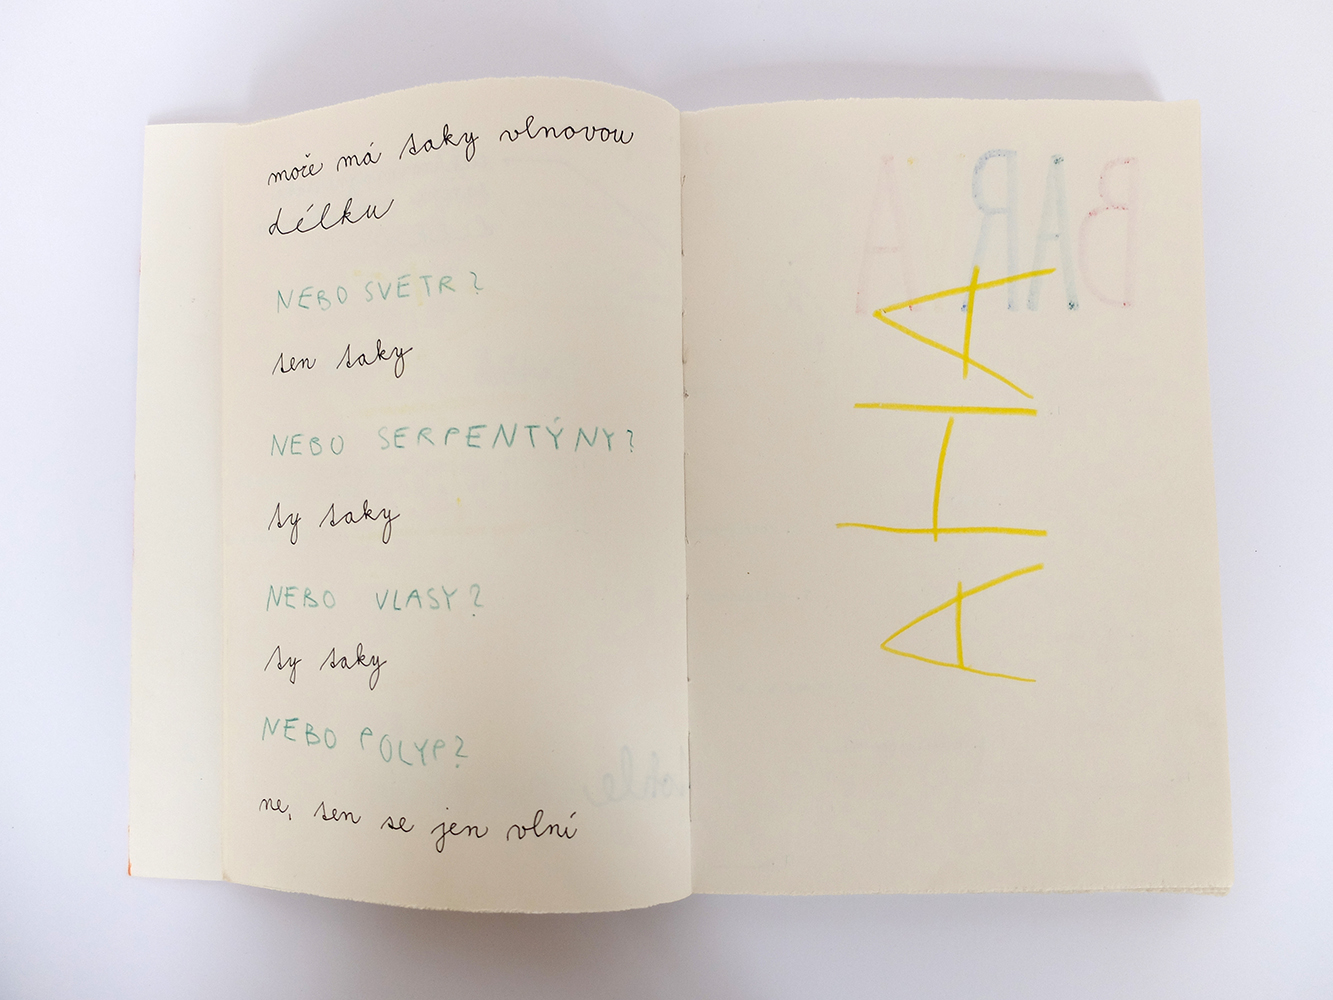 moře má taky vlnovou
délku
NEBO SVETR?
ten taky
NEBO SERPENTÝNY?
ty taky
NEBO VLASY?
ty taky
NEBO POLYP?
ne, ten se jen vlní
AHA
BARVA